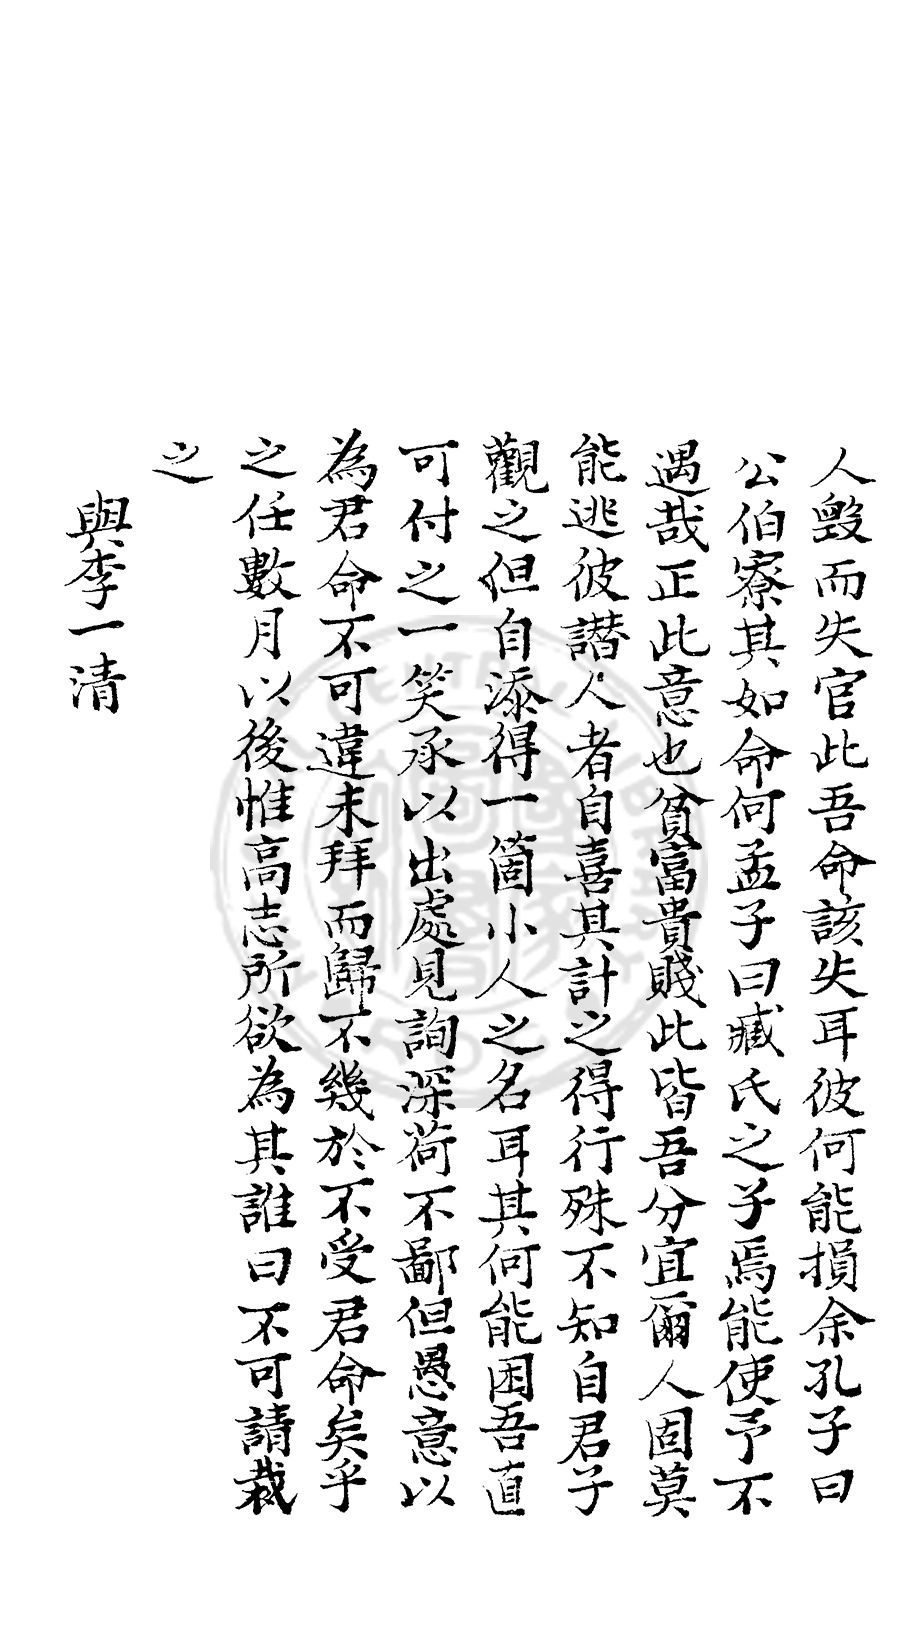 人毀而失官此吾命該失耳彼何能損余孔子曰
公伯寮其如命何孟子曰臧氏之子焉能使予不
遇哉正此意也貧富貴賤此皆吾分宜爾人固莫
能逃彼譖人者自喜其計之得行殊不知自君子
觀之但自添得一箇小人之名耳其何能困吾直
可付之一笑承以出處見詢深荷不鄙但愚意以
為君命不可違未拜而歸不幾於不受君命矣乎
之任數月以後惟高志所欲為其誰曰不可請裁
之
與李一清